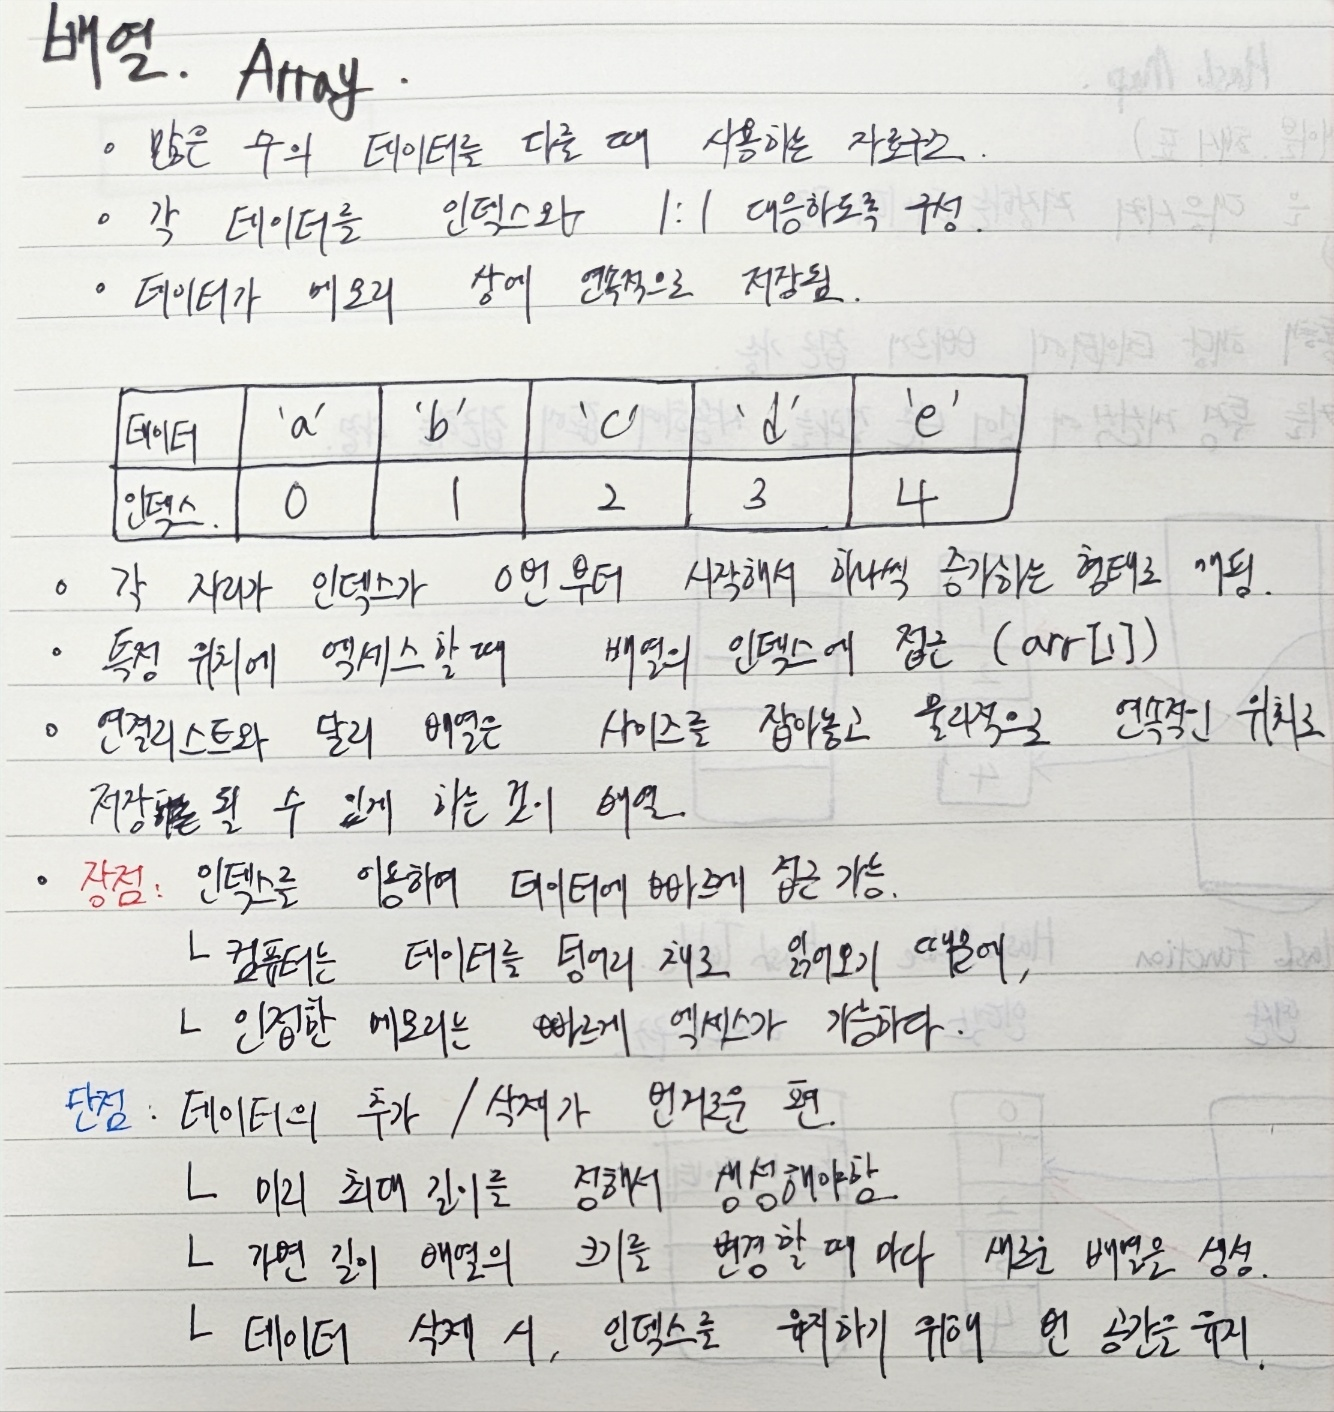 배열. Array.
• 많은 수의 데이터를 다룰 때 사용하는 자료구조.
• 각 데이터를 인덱스와 1:1 대응하도록 구성.
• 데이터가 메모리 상에 연속적으로 저장됨.
데이터 'a' 'b' 'c' 'd' 'e'
인덱스. 0 1 2 3 4
• 각 자리가 인덱스가 0번부터 시작해서 하나씩 증가하는 형태로 매핑.
• 특정 위치에 엑세스할 때 배열의 인덱스에 접근 (arr[1])
• 연결리스트와 달리 배열은 사이즈를 잡아놓고 물리적으로 연속적인 위치로
저장 될 수 있게 하는 것이 배열.
• 장점: 인덱스를 이용하여 데이터에 빠르게 접근 가능.
ㄴ 컴퓨터는 데이터를 덩어리 채로 읽어오기 때문에,
ㄴ 인접한 메모리는 빠르게 엑세스가 가능하다.
단점: 데이터의 추가/삭제가 번거로운 편.
ㄴ 미리 최대 길이를 정해서 생성해야함.
ㄴ 가변 길이 배열의 크기를 변경할 때 마다 새로운 배열을 생성.
ㄴ 데이터 삭제 시, 인덱스를 유지하기 위해 빈 공간을 유지.